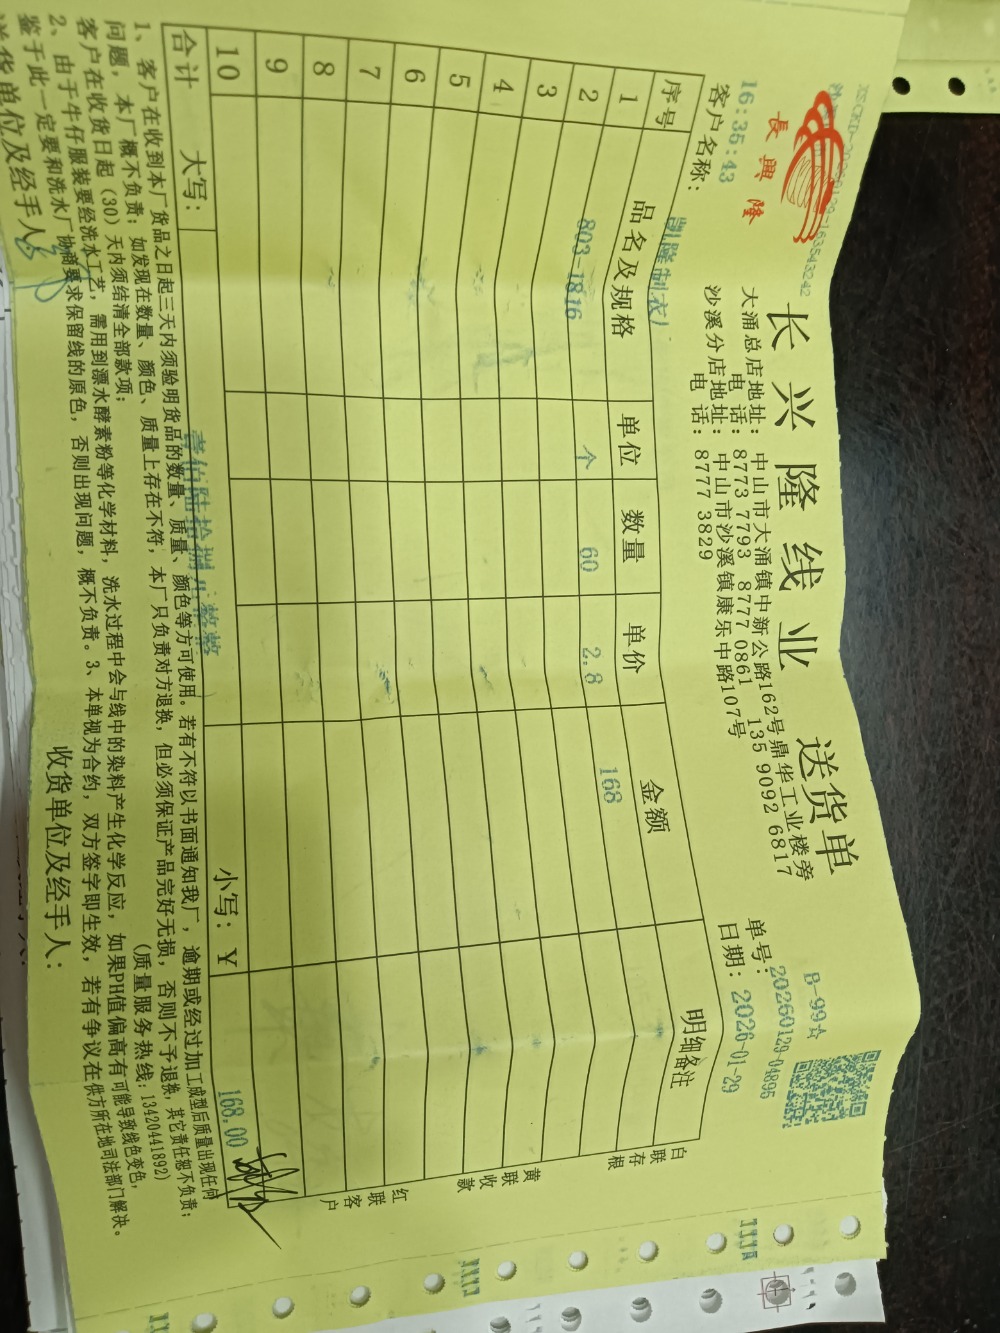 長興隆
长兴隆线业 送货单
B-99☆
大涌总店地址：中山市大涌镇中新公路162号鼎华工业楼旁
电 话：8773 7793 8777 0861 135 9092 6817
沙溪分店地址：中山市沙溪镇康乐中路107号
电 话：8777 3829
单号：20260129-04895
日期：2026-01-29
16:35:43
客户名称：凯隆制衣厂
序号 品名及规格 单位 数量 单价 金额 明细备注
1 803-1816 个 60 2.8 168
2
3
4
5
6
7
8
9
10
合计 大写： 壹佰陆拾捌元整 小写：￥ 168.00
白联存根
黄联收款
红联客户
1、客户在收到本厂货品之日起三天内须验明货品的数量、质量、颜色等方可使用。若有不符以书面通知我厂，逾期或经过加工成型后质量出现任何
问题，本厂概不负责；如发现在数量、颜色、质量上存在不符，本厂只负责对方退换，但必须保证产品完好无损，否则不予退换，其它责任恕不负责；
客户在收货日起（30）天内须结清全部款项；
(质量服务热线：13420441892)
2、由于牛仔服装要经洗水工艺，需用到漂水酵素粉等化学材料，洗水过程中会与线中的染料产生化学反应，如果PH值偏高有可能导致线色变色，
鉴于此一定要和洗水厂协商要求保留线的原色，否则出现问题，概不负责。3、本单视为合约，双方签字即生效，若有争议在供方所在地司法部门解决。
送货单位及经手人： 收货单位及经手人：